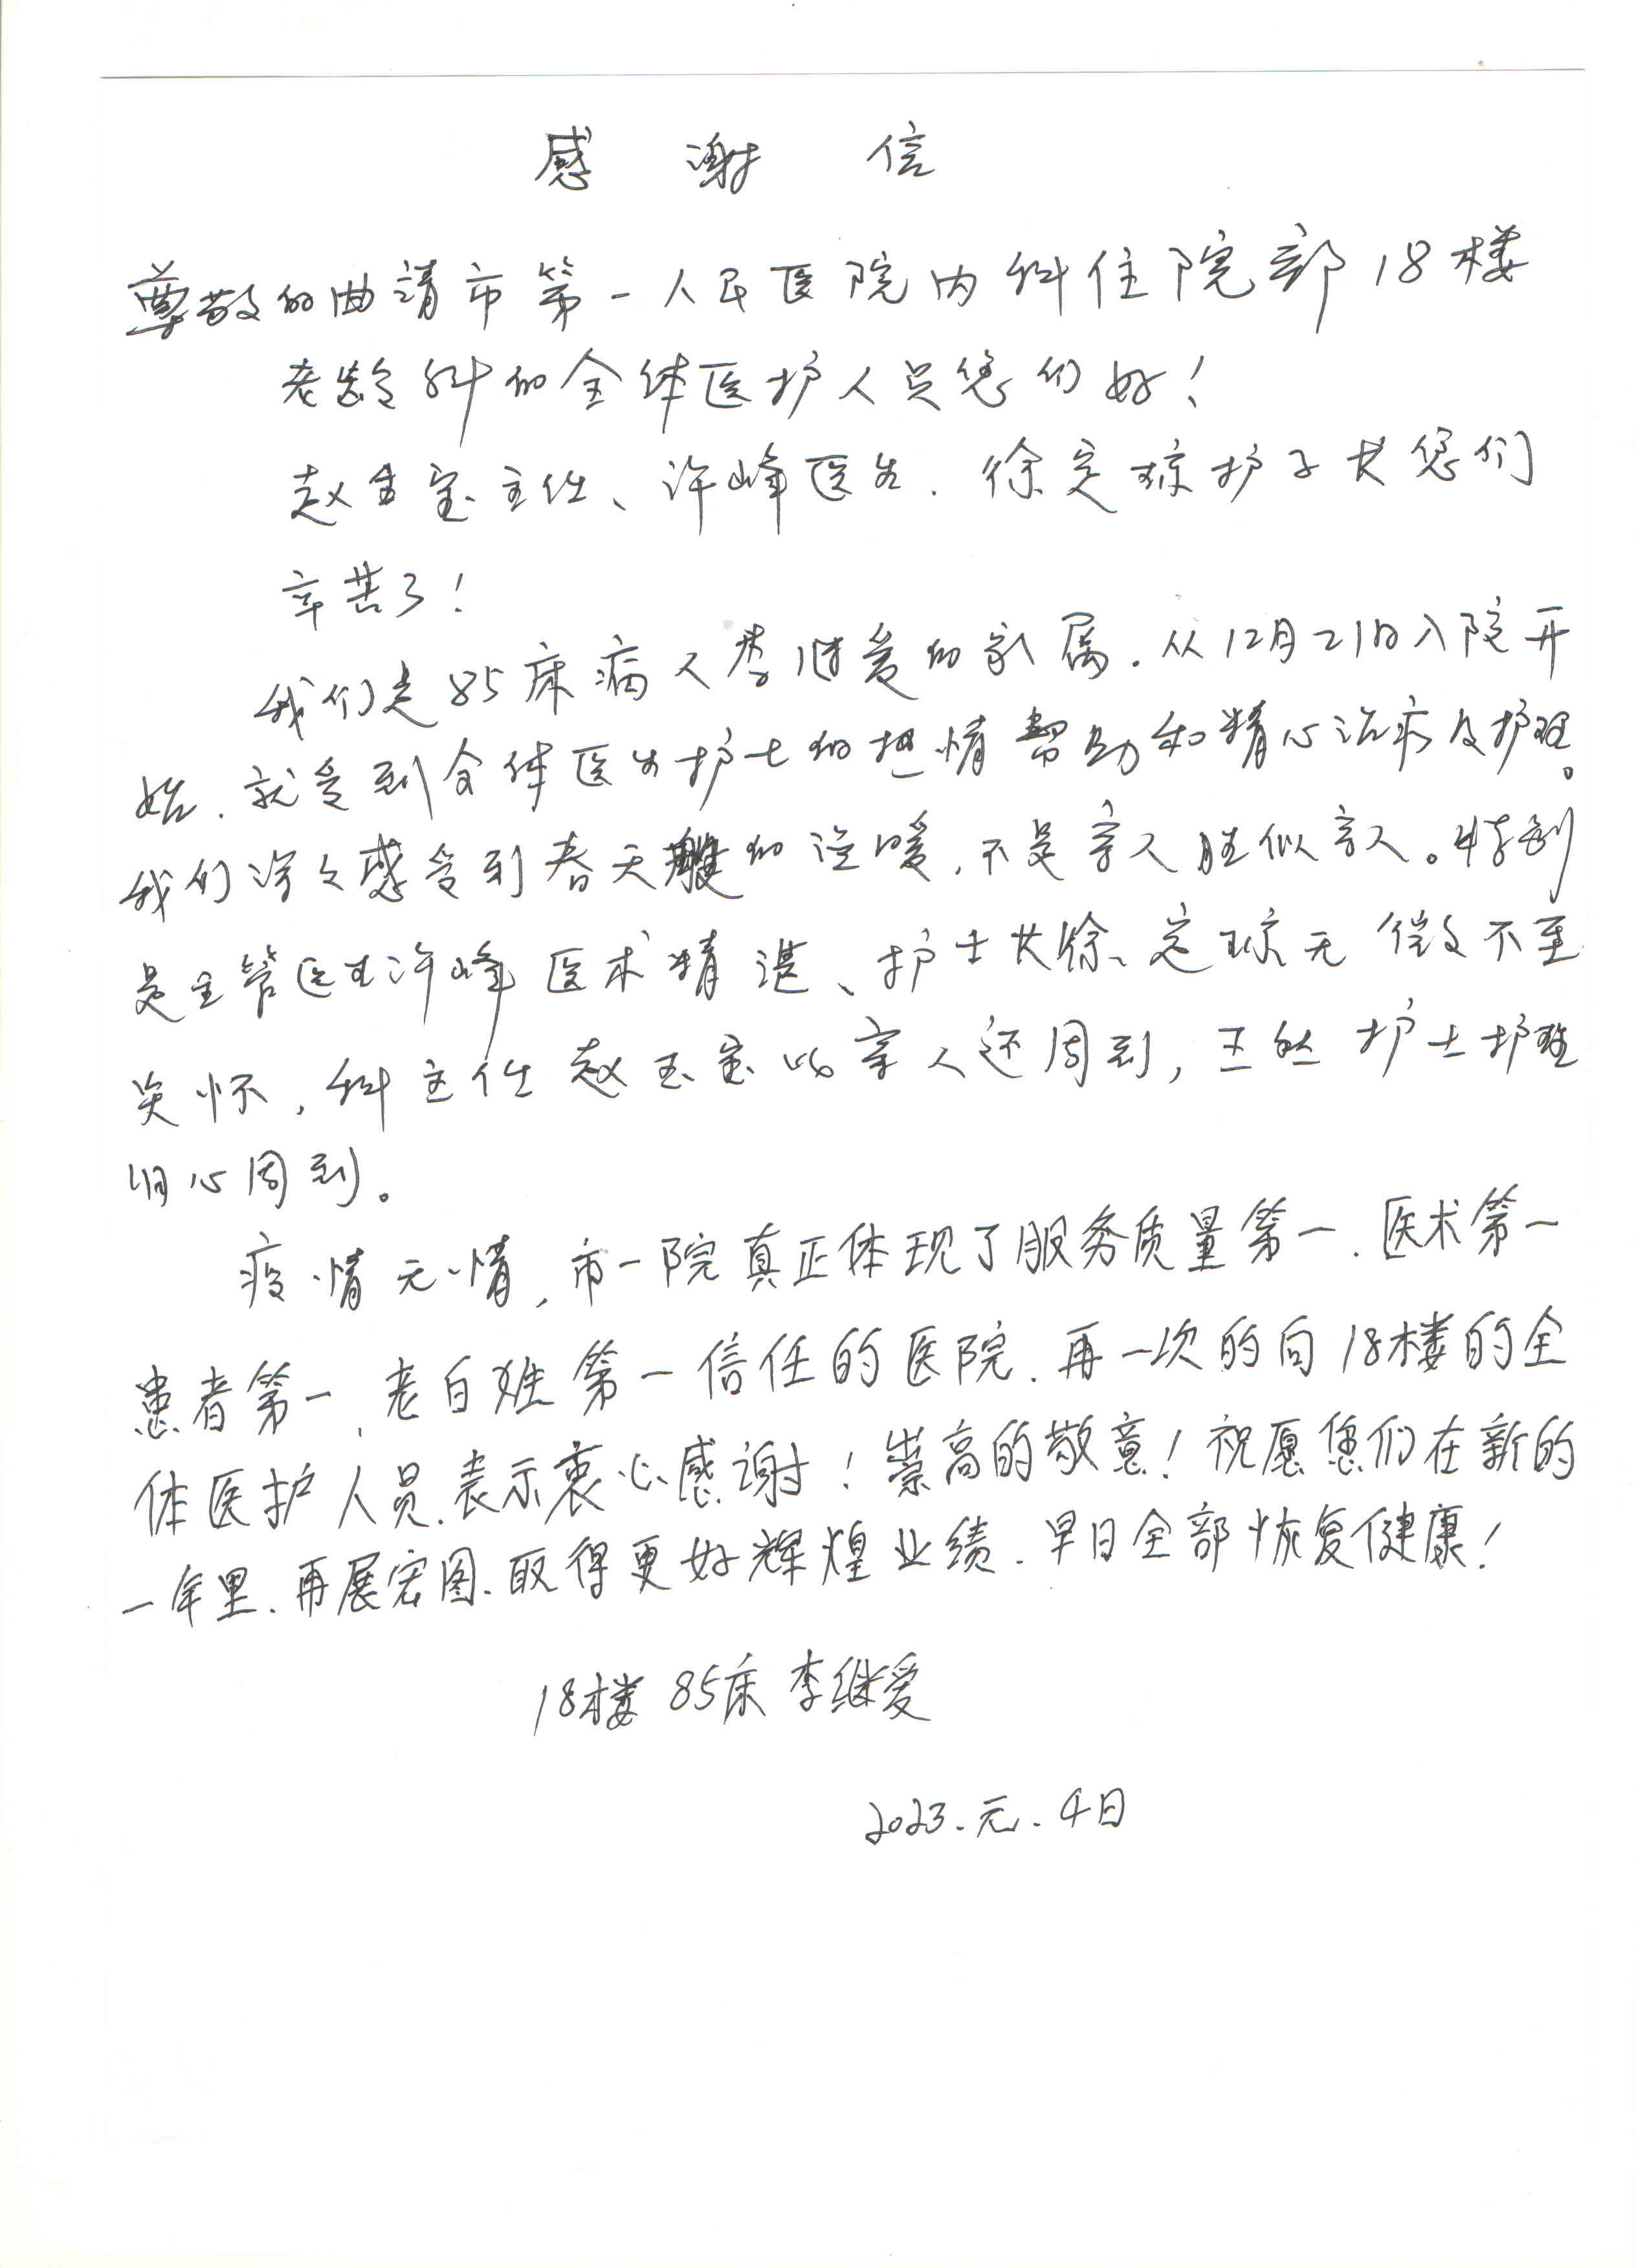 感谢信
尊敬的曲靖市第一人民医院内科住院部18楼
老龄科的全体医护人员您们好！
赵玉宝主任、许峰医生.徐定琼护士长您们
辛苦了！
我们是85床病人李继爱的家属.从12月21日入院开
始.就受到全体医生护士的热情帮助和精心治疗及护理。
我们深深感受到春天般的温暖,不是亲人胜似亲人。特别
是主管医生许峰医术精湛、护士长徐定琼无微不至
关怀,科主任赵玉宝比亲人还周到,王 护士护理
细心周到。
疫情无情,市一院真正体现了服务质量第一.医术第一
患者第一,老百姓第一信任的医院.再一次的向18楼的全
体医护人员.表示衷心感谢！崇高的敬意！祝愿您们在新的
一年里.再展宏图.取得更好辉煌业绩.早日全部恢复健康！
18楼85床李继爱
2023.元.4日